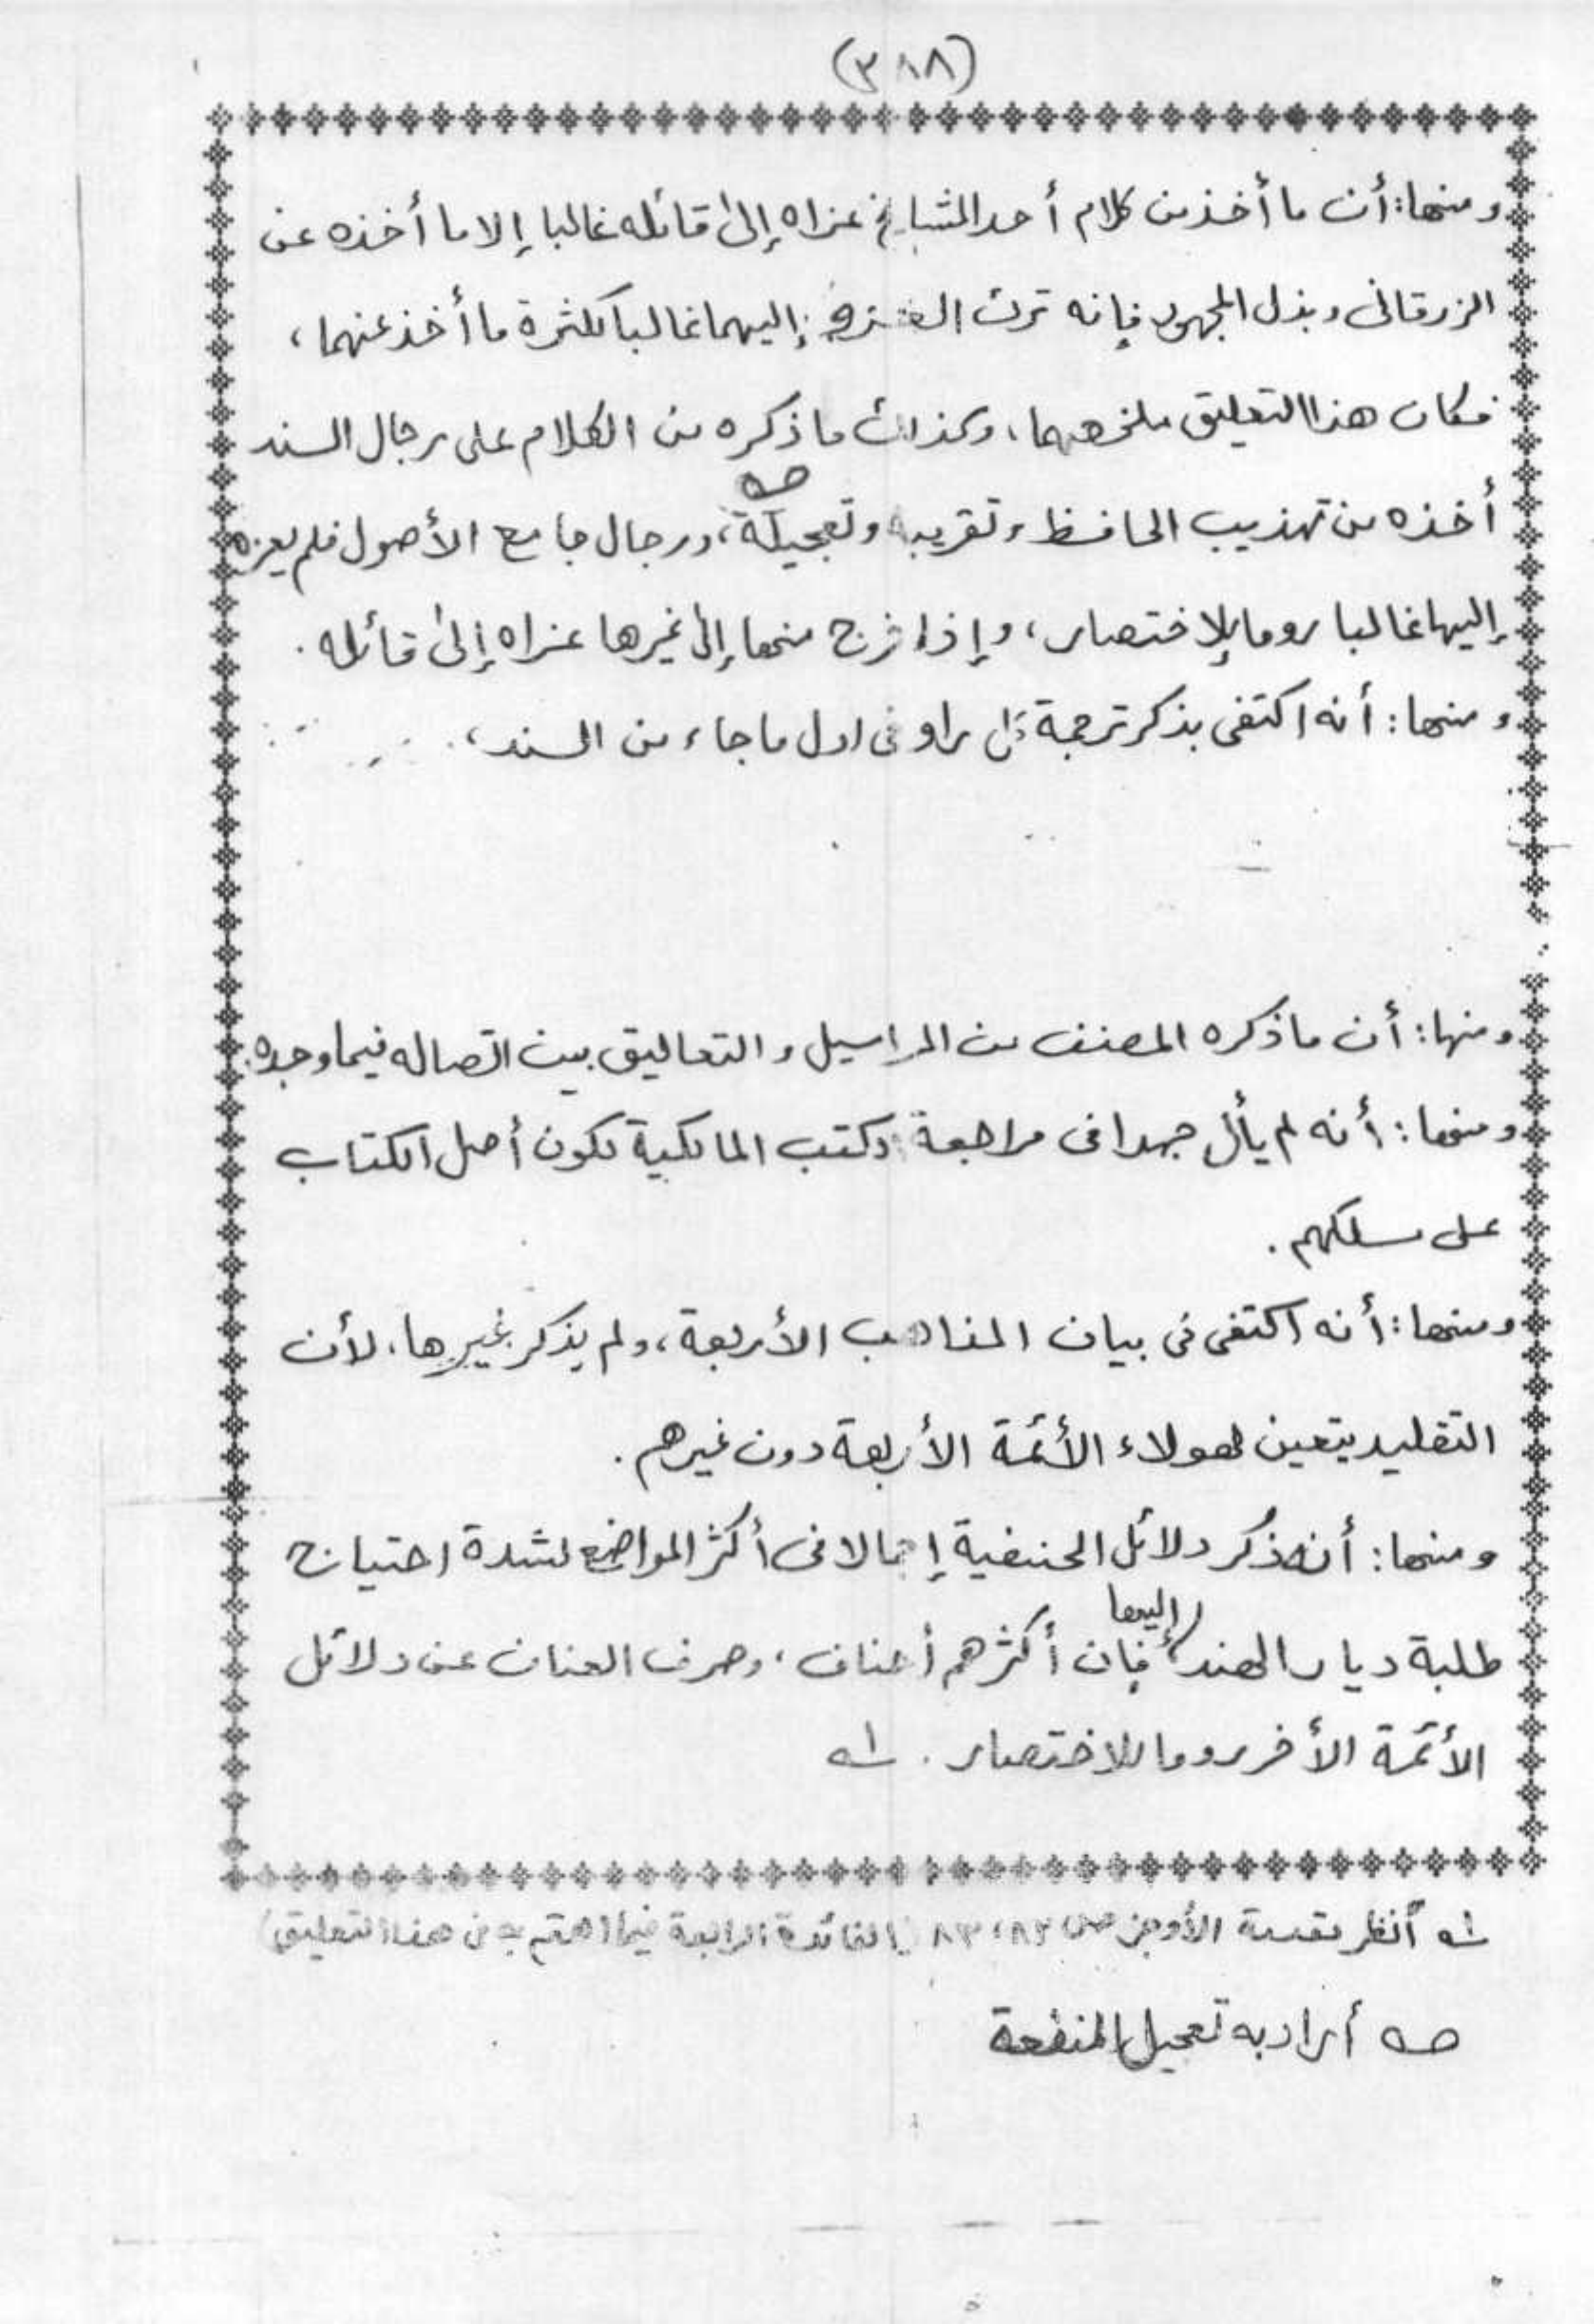 (٣٨٨)
ومنها: أن ما أخذ من كلام أحد المشايخ عزاه إلى قائله غالبا إلا ما أخذه عن
الزرقانى وبذل المجهود فإنه ترك العزو إليهما غالبا لكثرة ما أخذ عنهما،
فكان هذا التعليق ملخصهما، وكذلك ما ذكره من الكلام على رجال السند
أخذه من تهذيب الحافظ وتقريبه وتعجيله صـه، ورجال جامع الأصول فلم يعزه
إليها غالبا روما للإختصار، وإذا خرج منها إلى غيرها عزاه إلى قائله.
ومنها: أنه اكتفى بذكر ترجمة كل راو فى اول ما جاء من السند،
ومنها: أن ما ذكره المصنف من المراسيل والتعاليق بين اتصاله فيما وجده.
ومنها: أنه لم يأل جهدا فى مراجعة كتب المالكية لكون أصل الكتاب
على مسلكهم.
ومنها: أنه اكتفى فى بيان المذاهب الأربعة، ولم يذكر غيرها، لأن
التقليد يتعين لهولاء الأئمة الأربعة دون غيرهم.
ومنها: أنه ذكر دلائل الحنفية إجمالا فى أكثر المواضع لشدة احتياج
طلبة ديار الهند إليها فإن أكثرهم أحناف، وصرف العنان عن دلائل
الأئمة الأخر روما للاختصار. لـه
لـه أنظر مقدمة الأوجز ص ٨٢، ٨٣ (الفائدة الرابعة فيما اهتم به فى هذا التعليق)
صـه أراد به تعجيل المنفعة